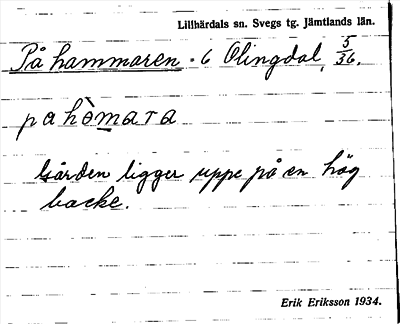 Lillhärdals sn. Svegs tg. Jämtlands län.
På hammaren · 6 Olingdal, 5/36,
pa hòmara
Gården ligger uppe på en hög
backe.
Erik Eriksson 1934.